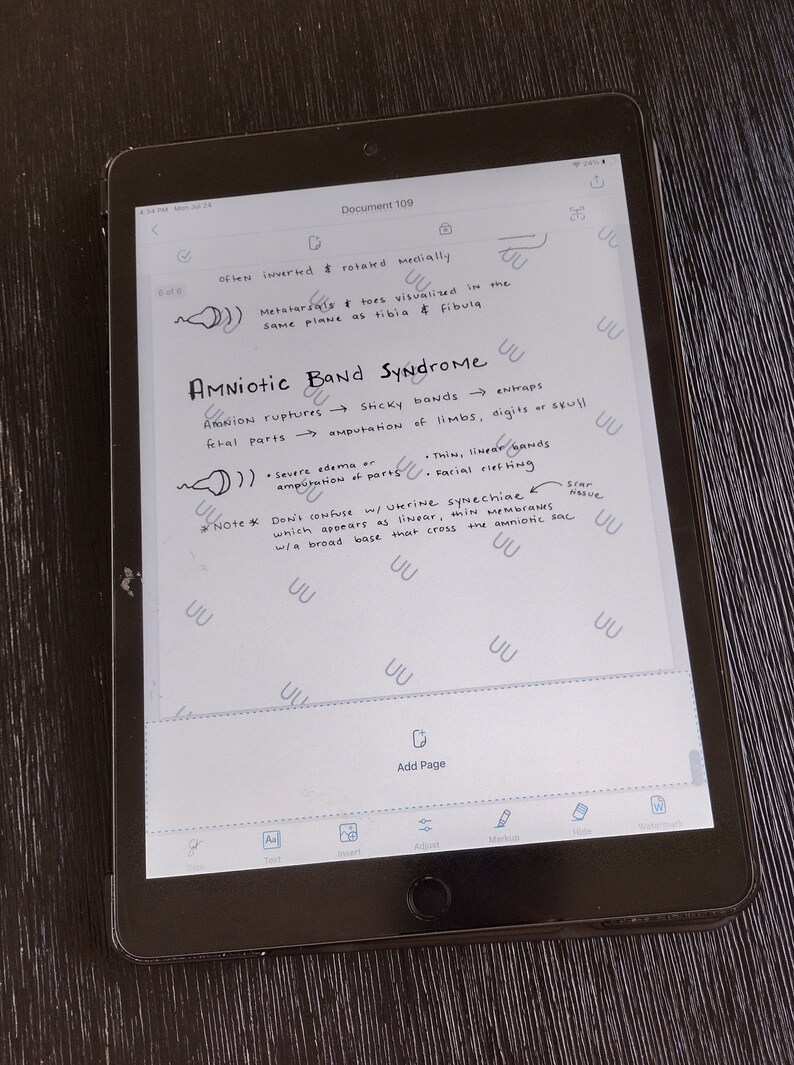 4:34 PM Mon Jul 24
24%
Document 109
6 of 6
often inverted & rotated medially
Metatarsals & toes visualized in the
same plane as tibia & fibula
Amniotic Band Syndrome
Amnion ruptures → sticky bands → entraps
fetal parts → amputation of limbs, digits or skull
• severe edema or
amputation of parts
• Thin, linear bands
• Facial clefting
*Note* Don't confuse w/ uterine synechiae ← scar
tissue
which appears as linear, thin membranes
w/a broad base that cross the amniotic sac
Add Page
Sign
Text
Insert
Adjust
Markup
Hide
Watermark